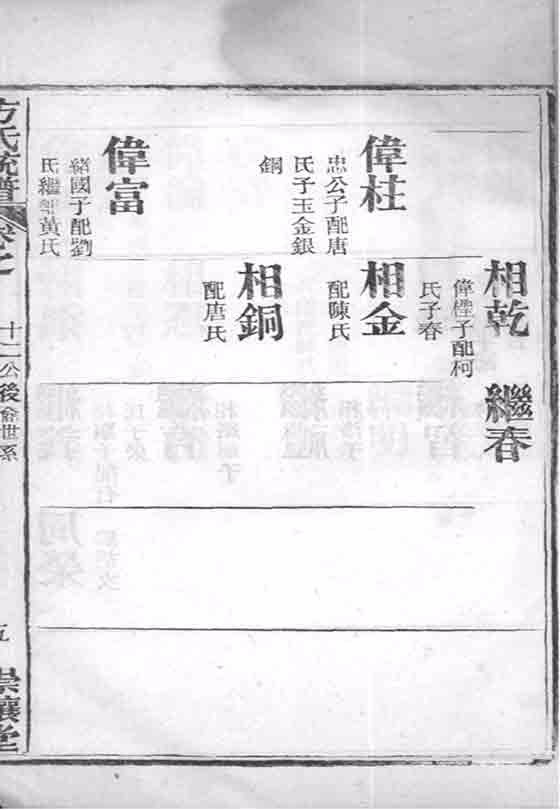 相乾
偉煃子配柯
氏子春
繼春
偉柱
忠公子配唐
氏子玉金銀
銅
相金
配陳氏
相銅
配唐氏
偉富
緒國子配劉
氏繼配黃氏
方氏統譜
卷之
十二公後俞世系
五
崇讓堂